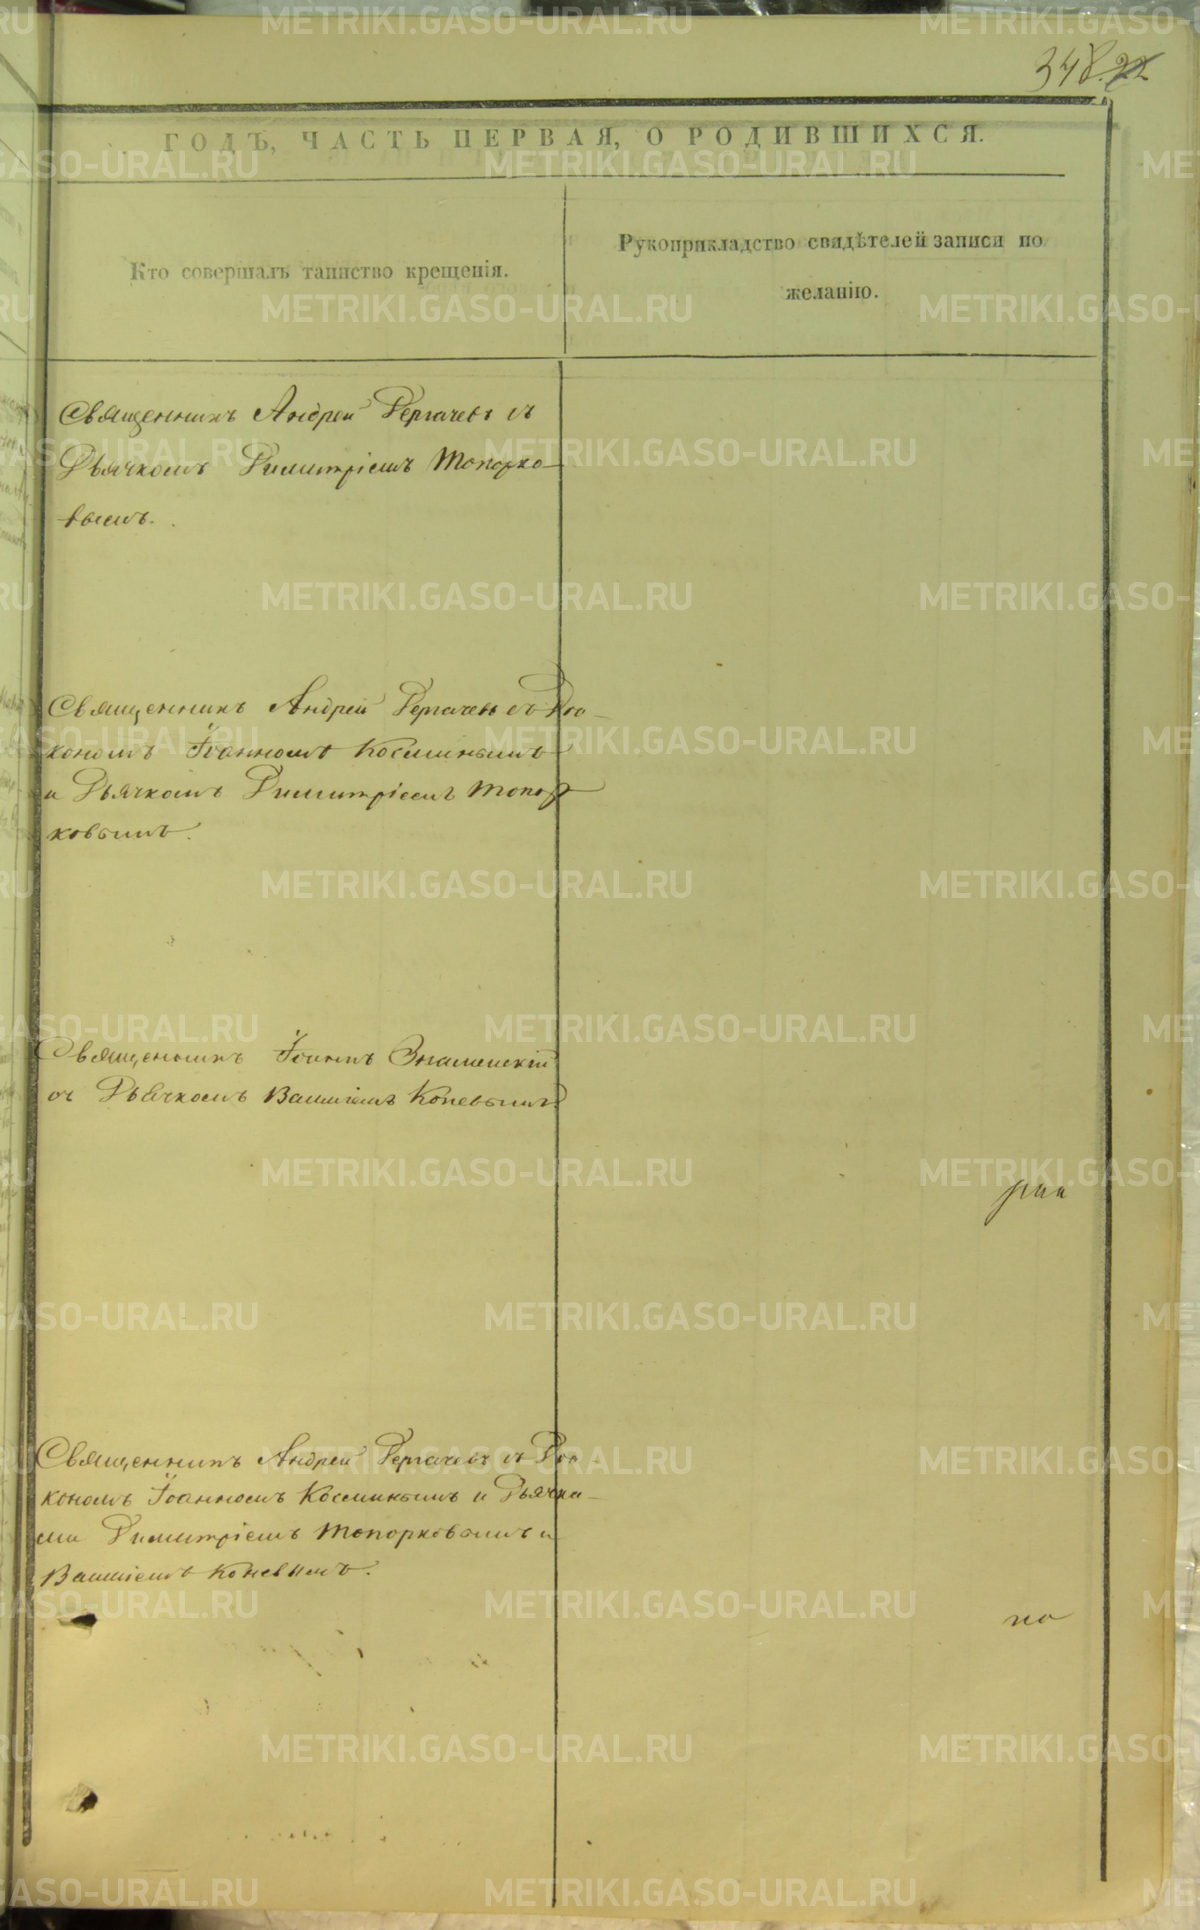 348. 22
ГОДЪ, ЧАСТЬ ПЕРВАЯ, О РОДИВШИХСЯ.
Кто совершалъ таинство крещенія.
Рукоприкладство свидѣтелей записи по
желанію.
Священникъ Андрей Дергачевъ съ
Дьячкомъ Димитріемъ Топорко-
вымъ.
Священникъ Андрей Дергачевъ съ Діа-
кономъ Іоанномъ Косминымъ
и Дьячкомъ Димитріемъ Топор-
ковымъ.
Священникъ Іоаннъ Знаменскій
съ Дьячкомъ Вассіемъ Коневымъ
Священникъ Андрей Дергачевъ съ Діа-
кономъ Іоанномъ Косминымъ и Дьячка-
ми Димитріемъ Топорковымъ и
Вассіемъ Коневымъ.
но
METRIKI.GASO-URAL.RU